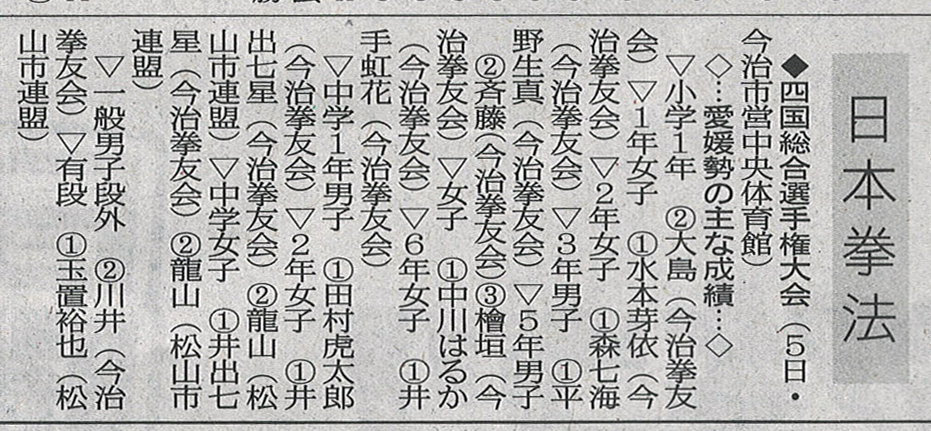 日本拳法
◆四国総合選手権大会（５日・
今治市営中央体育館）
◇…愛媛勢の主な成績…◇
▽小学１年　②大島（今治拳友
会）▽１年女子　①水本芽依（今
治拳友会）▽２年女子　①森七海
（今治拳友会）▽３年男子　①平
野生真（今治拳友会）▽５年男子
②斉藤（今治拳友会）③檜垣（今
治拳友会）▽女子　①中川はるか
（今治拳友会）▽６年女子　①井
手虹花（今治拳友会）
▽中学１年男子　①田村虎太郎
（今治拳友会）▽２年女子　①井
出七星（今治拳友会）②龍山（松
山市連盟）▽中学女子　①井出七
星（今治拳友会）②龍山（松山市
連盟）
▽一般男子段外　②川井（今治
拳友会）▽有段　①玉置裕也（松
山市連盟）